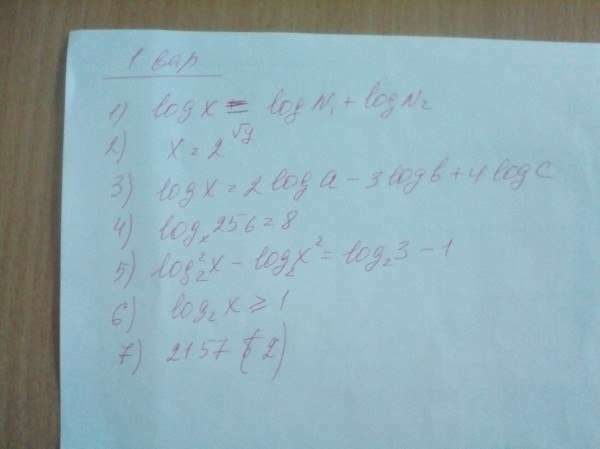 1 вар
1) log x = log N₁ + log N₂
2) x = 2^√y
3) log x = 2 log a - 3 log b + 4 log c
4) logₓ 256 = 8
5) log₂² x - log₂ x² = log₂ 3 - 1
6) log₂ x ⩾ 1
7) 2157 ( 2)